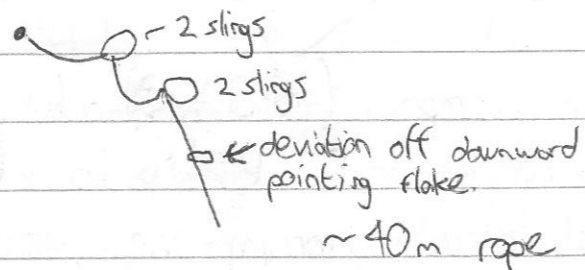 ~ 2 slings
2 slings
deviation off downward
pointing flake.
~ 40m rope